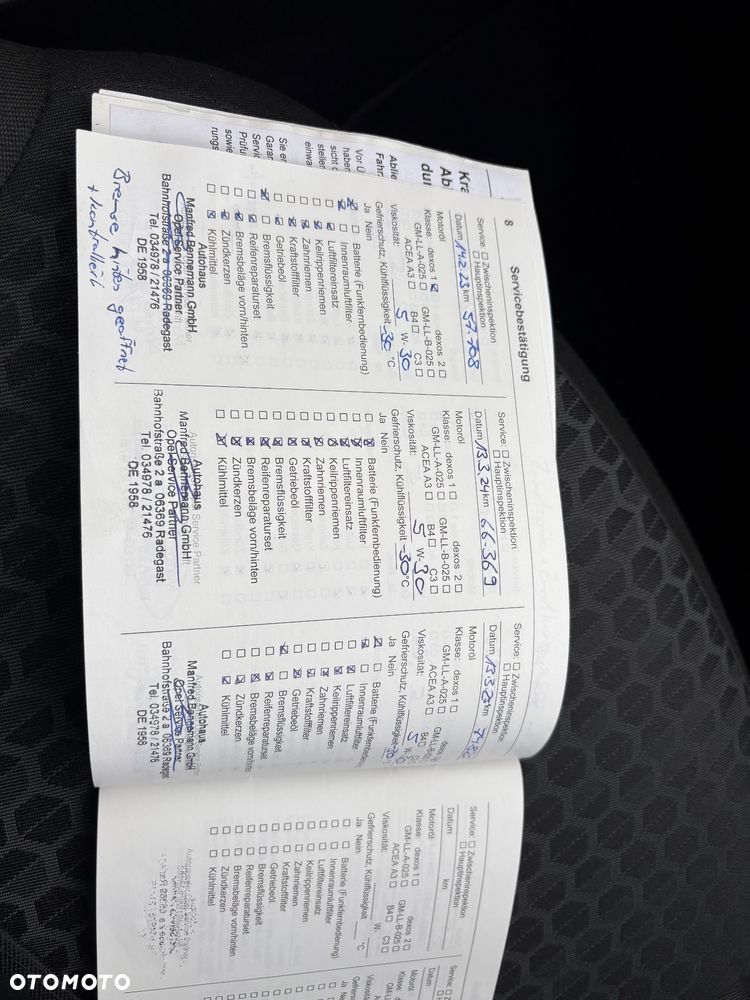 8
Servicebestätigung
Service: ☐ Zwischeninspektion
☐ Hauptinspektion
Datum 14.2.23 km 57.708
Motoröl
Klasse: dexos 1 ☒ dexos 2 ☐
GM-LL-A-025 ☐ GM-LL-B-025 ☐
ACEA A3 ☐ B4 ☐ C3 ☐
Viskosität: 5 W- 30
Gefrierschutz, Kühlflüssigkeit -30 °C
Ja Nein
Batterie (Funkfernbedienung)
Innenraumluftfilter
Luftfiltereinsatz
Keilrippenriemen
Zahnriemen
Kraftstofffilter
Getriebeöl
Bremsflüssigkeit
Reifenreparaturset
Bremsbeläge vorn/hinten
Zündkerzen
Kühlmittel
Autohaus
Manfred Bennemann GmbH
Opel Service Partner
Bahnhofstraße 2 a 06369 Radegast
Tel. 034978 / 21476
DE 1958
Bremse hinten geöffnet
+ kontrolliert
Service: ☐ Zwischeninspektion
☐ Hauptinspektion
Datum 13.3.24 km 66.369
Motoröl
Klasse: dexos 1 ☐ dexos 2 ☐
GM-LL-A-025 ☐ GM-LL-B-025 ☐
ACEA A3 ☐ B4 ☐ C3 ☐
Viskosität: 5 W- 30
Gefrierschutz, Kühlflüssigkeit -30 °C
Ja Nein
Batterie (Funkfernbedienung)
Innenraumluftfilter
Luftfiltereinsatz
Keilrippenriemen
Zahnriemen
Kraftstofffilter
Getriebeöl
Bremsflüssigkeit
Reifenreparaturset
Bremsbeläge vorn/hinten
Zündkerzen
Kühlmittel
Autohaus
Manfred Bennemann GmbH
Opel Service Partner
Bahnhofstraße 2 a 06369 Radegast
Tel. 034978 / 21476
DE 1958
Service: ☐ Zwischeninspektion
☐ Hauptinspektion
Datum 13.3.25 km
Motoröl
Klasse: dexos 1 ☐
GM-LL-A-025 ☐
ACEA A3 ☐ B4 ☐
Viskosität: 5 W-
Gefrierschutz, Kühlflüssigkeit -30 °C
Ja Nein
Batterie (Funkfernbedienung)
Innenraumluftfilter
Luftfiltereinsatz
Keilrippenriemen
Zahnriemen
Kraftstofffilter
Getriebeöl
Bremsflüssigkeit
Reifenreparaturset
Bremsbeläge vorn/hinten
Zündkerzen
Kühlmittel
Autohaus
Manfred Bennemann GmbH
Opel Service Partner
Bahnhofstraße 2 a 06369 Radegast
Tel. 034978 / 21476
DE 1958
Service: ☐ Zwischeninspektion
☐ Hauptinspektion
Datum km
Motoröl
Klasse: dexos 1 ☐ dexos 2 ☐
GM-LL-A-025 ☐ GM-LL-B-025 ☐
ACEA A3 ☐ B4 ☐ C3 ☐
Viskosität: W-
Gefrierschutz, Kühlflüssigkeit °C
Ja Nein
☐ ☐ Batterie (Funkfernbedienung)
☐ ☐ Innenraumluftfilter
☐ ☐ Luftfiltereinsatz
☐ ☐ Keilrippenriemen
☐ ☐ Zahnriemen
☐ ☐ Kraftstofffilter
☐ ☐ Getriebeöl
☐ ☐ Bremsflüssigkeit
☐ ☐ Reifenreparaturset
☐ ☐ Bremsbeläge vorn/hinten
☐ ☐ Zündkerzen
☐ ☐ Kühlmittel
OTOMOTO